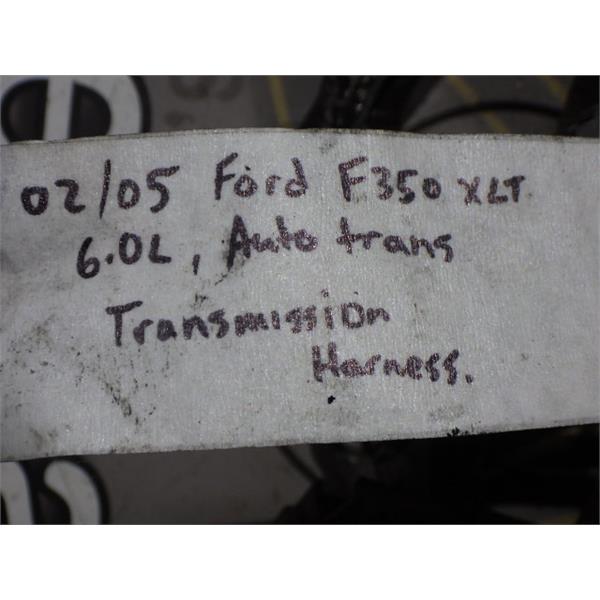 02/05 Ford F350 XLT
6.0L, Auto trans
Transmission
Harness.